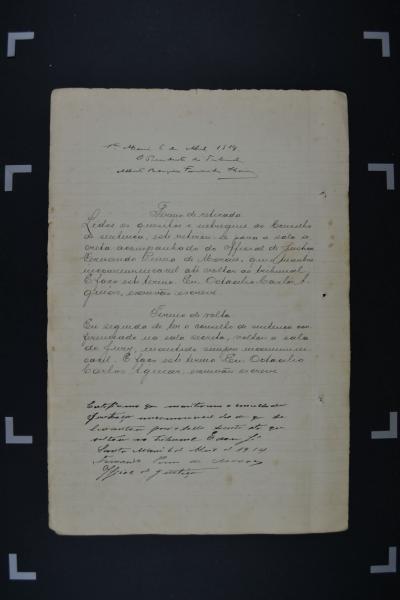 Sta Maria 6 de Abril 1914.
O Presidente do Tribunal
Alberto Fernandes
Termo de retirada
Lidos os quesitos e entregues ao Conselho
de sentença, este retirou-se para a sala se-
creta acompanhado do official de justiça
Fernando Penna de Moraes, que o manteve
incommunicavel até voltar ao tribunal.
E faço este termo. Eu, Octacilio Carlos A-
guiar, escrivão escrevi
Termo de volta
Em seguida de ter o conselho de sentença con-
ferenciado na sala secreta, voltou a sala
do Jury, mantido sempre incommuni-
cavel. E faço este termo. Eu, Octacilio
Carlos Aguiar, escrivão escrevi
Certifico que mantive o conselho de
sentença incommunicavel
voltou ao Tribunal. Eu dou fé.
Santa Maria 6 de Abril de 1914
Fernando Penna de Moraes
Official de justiça